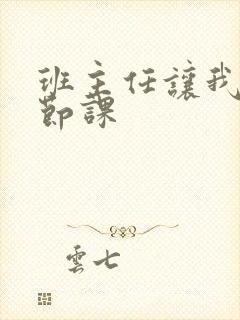 班主任讓我
節課
雲七